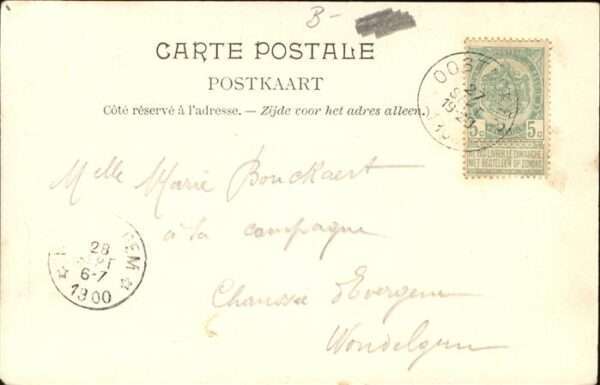 B-
CARTE POSTALE
POSTKAART
Côté réservé à l'adresse. — Zijde voor het adres alleen.
OOST
27
5c 5c
NE PAS LIVRER LE DIMANCHE
NIET BESTELLEN OP ZONDAG
Melle Marie Bouckaert
à la campagne
Chaussée d'Evergem
Wondelgem
EM
28
SEPT
6-7
1900